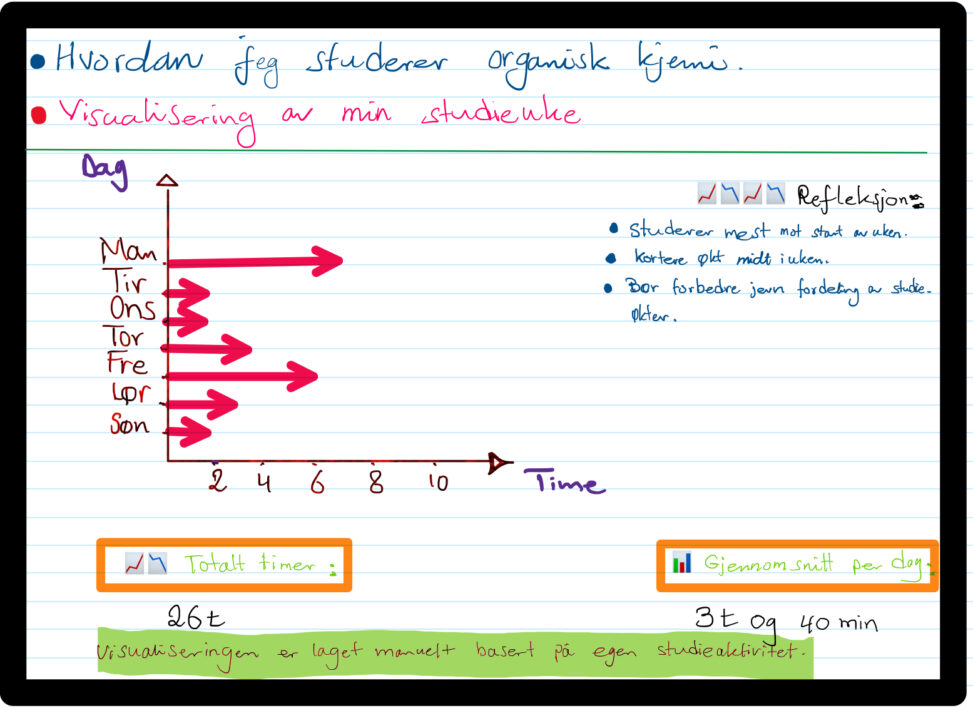 • Hvordan jeg studerer organisk kjemi.
• Visualisering av min studieuke
Dag
📈📉📈📉 Refleksjon:
• Studerer mest mot start av uken.
• Kortere økt midt i uken.
• Bør forbedre jevn fordeling av studie-
økter.
Man
Tir
Ons
Tor
Fre
Lør
Søn
2 4 6 8 10
Time
📈📉 Totalt timer:
📊 Gjennomsnitt per dag:
26t
3t og 40 min
Visualiseringen er laget manuelt basert på egen studieaktivitet.